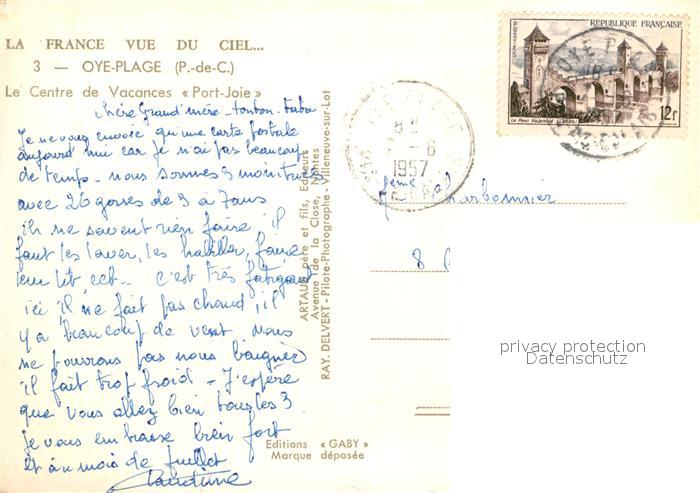 LA FRANCE VUE DU CIEL...
3 — OYE-PLAGE (P.-de-C.)
Le Centre de Vacances « Port-Joie »
chère Grand'mère - tonton - tata
Je ne vous envoie qu'une carte postale
aujourd'hui car je n'ai pas beaucoup
de temps - nous sommes 3 monitrices
avec 26 gosses de 3 à 7 ans
ils ne savent rien faire il
faut les laver, les habiller, faire
leur lit ect - c'est très fatigant
ici il ne fait pas chaud, il
y a beaucoup de vent nous
ne pouvons pas nous baigner
il fait trop froid - J'espère
que vous allez bien tous les 3
je vous embrasse bien fort
et à au mois de juillet
ARTAUD père et fils, Editeurs
Avenue de la Close, Nantes
RAY. DELVERT - Pilote-Photographe - Villeneuve-sur-Lot
Editions « GABY »
Marque déposée
REPUBLIQUE FRANÇAISE
POSTES
Le Pont Valentré
12f
OYE PLAGE
8
6
1957
Charbonnier
8
privacy protection
Datenschutz